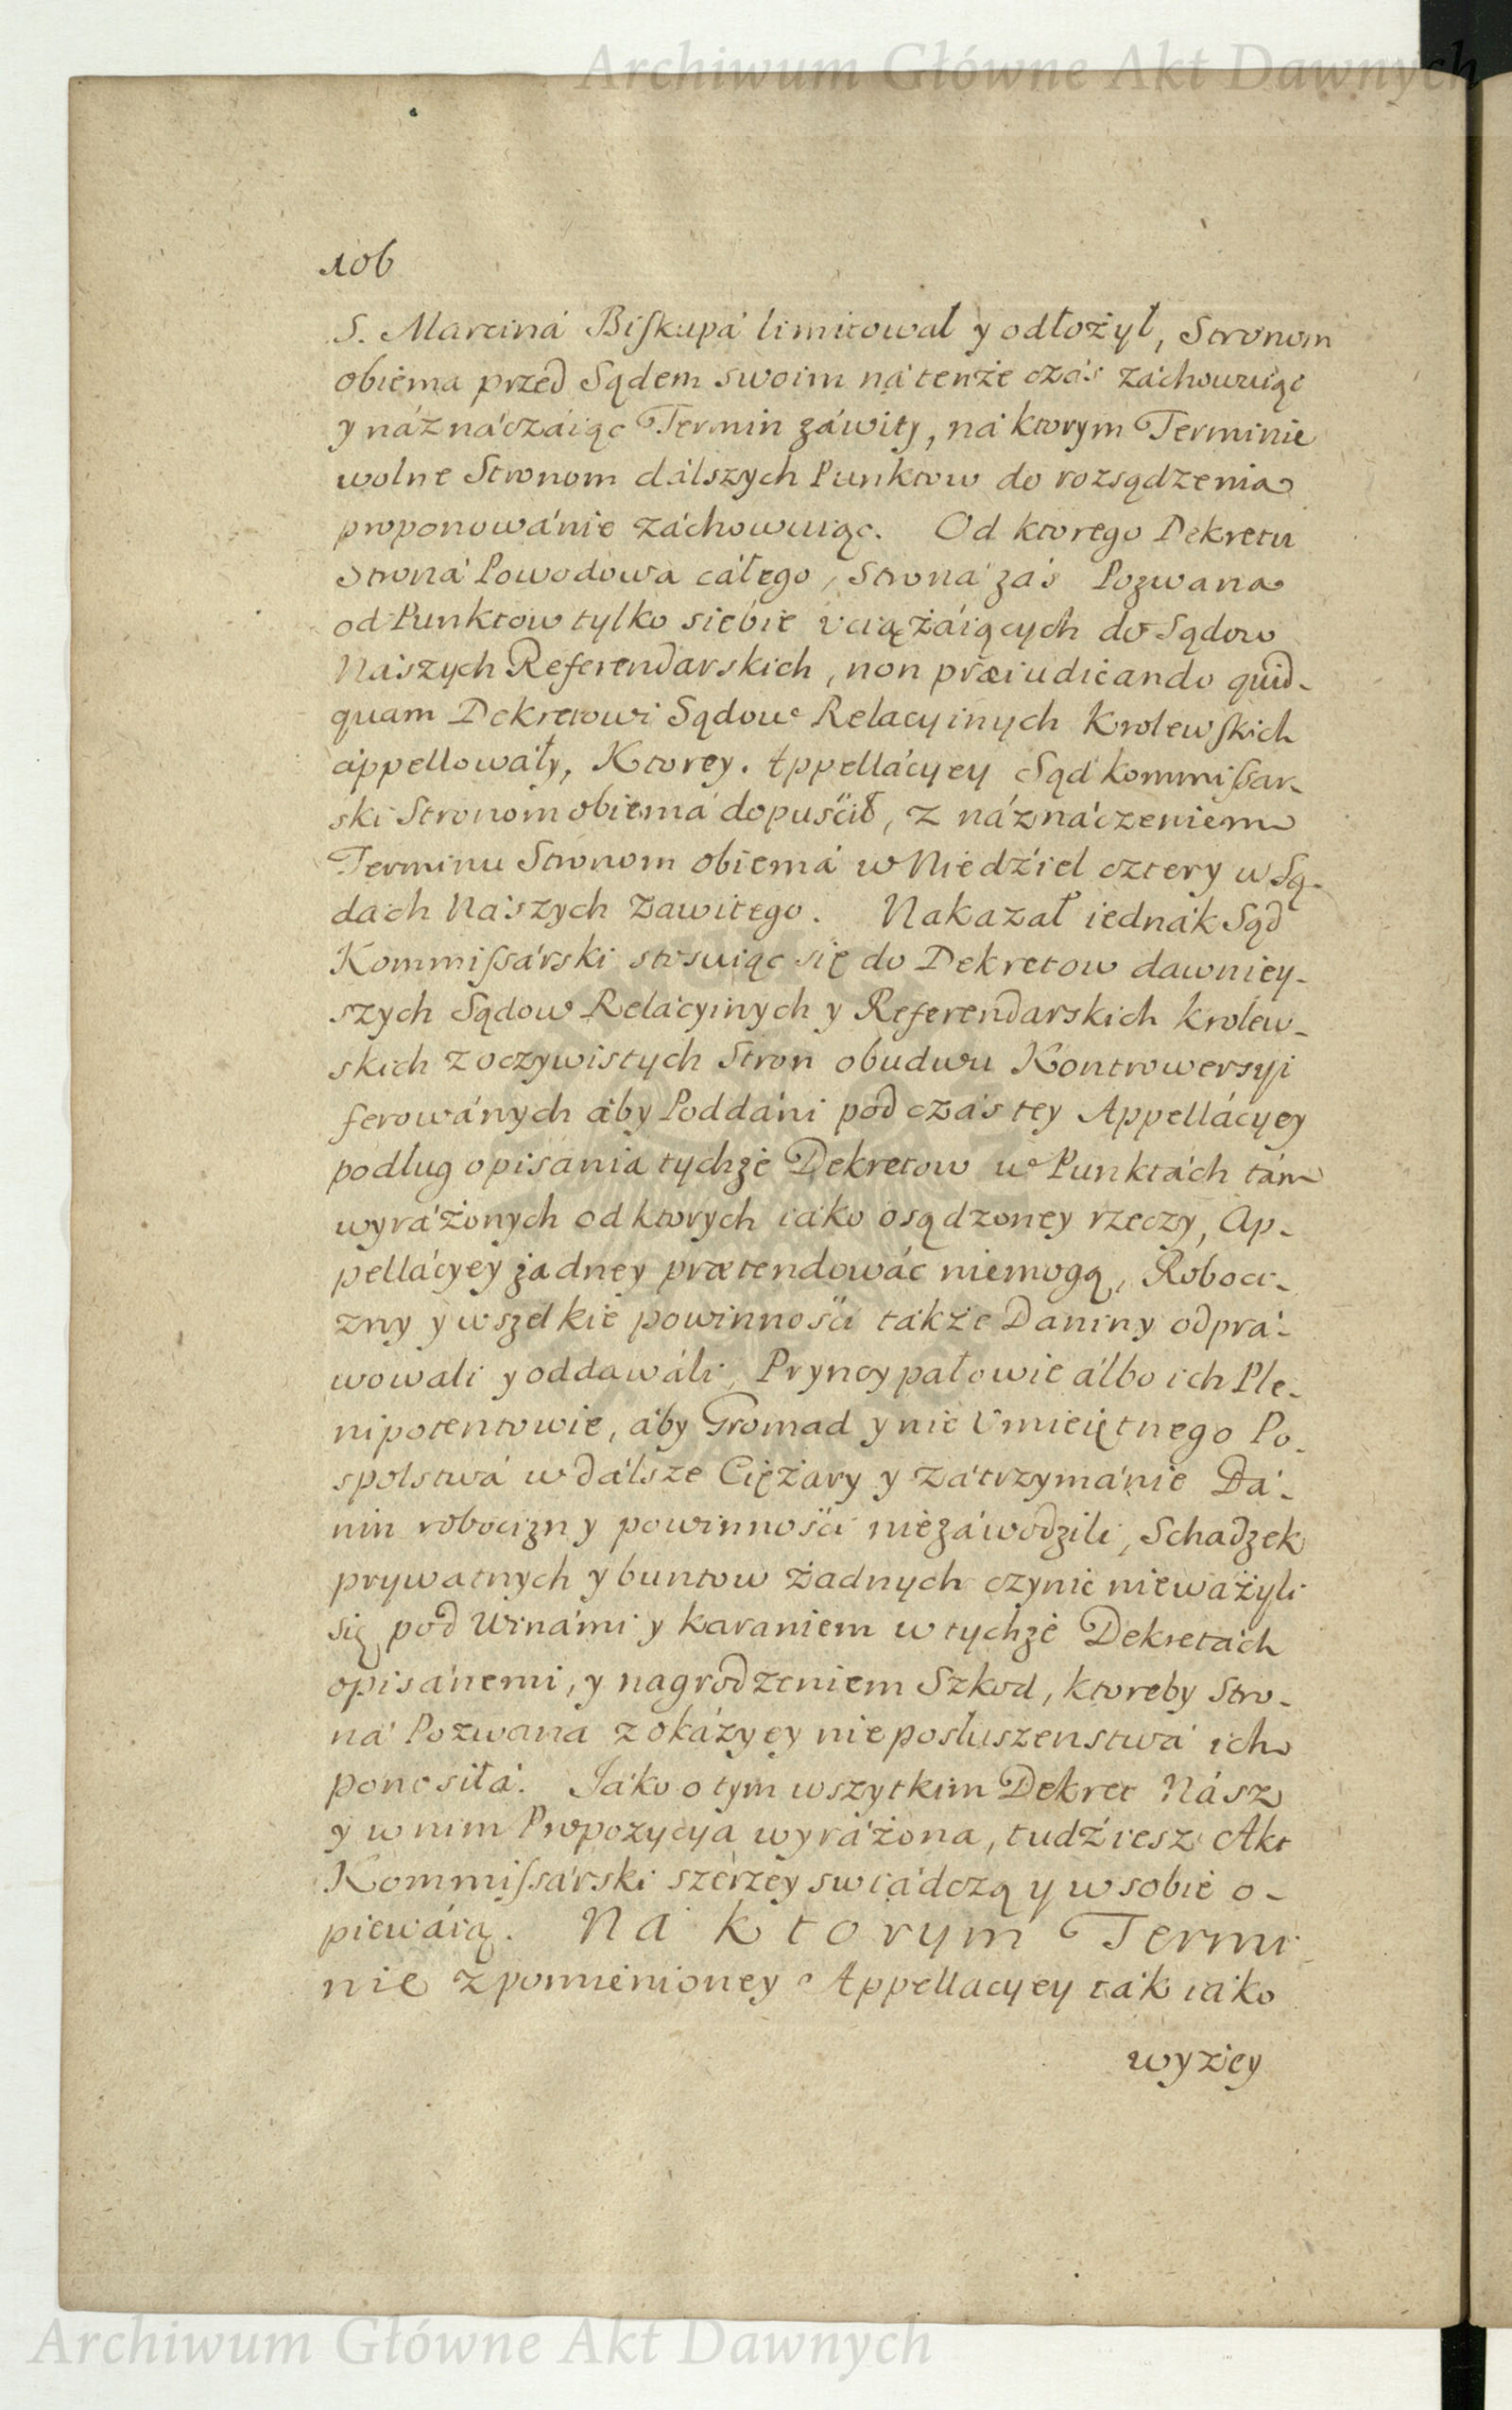 Archiwum Główne Akt Dawnych
106
S. Marciná Biſkupá limitował y odłożył, Stronom
obiema przed Sądem swoim ná tenże czás záchowuiąc
y náznáczáiąc Termin záwity, ná ktorym Terminie
wolne Stronom dálszych Punktow do rozsądzenia
proponowánie záchowuiąc. Od ktorego Dekretu
Stroná Powodowa cáłego, Stroná záś Pozwana
od Punktow tylko siebie vciążáiących do Sądow
Nászych Referendarskich, non præiudicando quid-
quam Dekretowi Sądow Relacyinych Krolewſkich
áppellowáły, Ktorey Appellácyey Sąd Kommiſsar-
ski Stronom obiemá dopuścił, z náznáczeniem
Terminu Stronom obiemá w Niedźiel cztery w Są-
dách Nászych zawitego. Nakazał iednák Sąd
Kommiſsárski stosuiąc się do Dekretow dawniey-
szych Sądow Relácyinych y Referendarskich Krolew-
skich z oczywistych Stron obudwu Kontrowersyi
ferowánych áby Poddáni pod czás tey Appellácyey
podług opisánia tychże Dekretow w Punktách tám
wyráżonych od ktorych iáko osądzoney rzeczy, Ap-
pellácyey żadney prætendowáć niemogą, Roboci-
zny y wszelkie powinnośći tákże Daniny odprá-
wowali y oddawáli, Pryncypałowie álbo ich Ple-
nipotentowie, áby Gromad y nie Umieiętnego Po-
spolstwá w dálsze Ciężary y zátrzymánie Dá-
nin robocizny powinnośći niezáwodzili, Schadzek
prywatnych y buntow żadnych czynić nieważyli
się pod Winámi y karaniem w tychże Dekretách
opisánemi, y nagrodzeniem Szkod, ktoreby Stro-
ná Pozwana z okázyey nieposłuszenstwá ich
ponosiłá. Jáko o tym wszytkim Dekret Nász
y w nim Propozycya wyráżona, tudźiesz Akt
Kommiſsárski szerzey swiádczą y w sobie o-
piewáią. Ná ktorym Termi
nie zpomienioney Appellacyey ták iáko
wyżey
Archiwum Główne Akt Dawnych